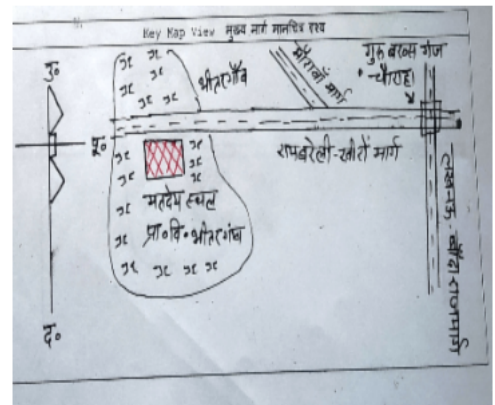 Key Map View मुख्य मार्ग मानचित्र दृश्य
उ०
पू०
द०
भीतरगाँव
मौरावाँ मार्ग
गुरु बख्स गंज
चौराहा
रायबरेली-खीरों मार्ग
लखनऊ-बाँदा राजमार्ग
मतदेय स्थल
प्रा०वि०भीतरगांव